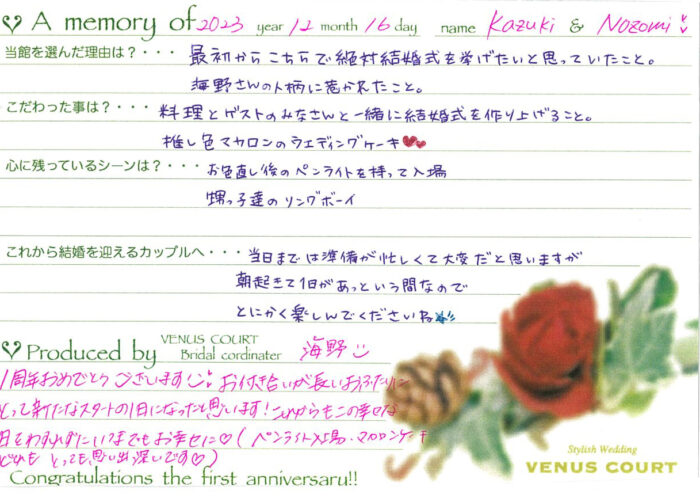 A memory of 2023 year 12 month 16 day name Kazuki & Nozomi
当館を選んだ理由は?・・・最初からこちらで絶対結婚式を挙げたいと思っていたこと。
海野さんの人柄に惹かれたこと。
こだわった事は?・・・料理とゲストのみなさんと一緒に結婚式を作り上げること。
推し色マカロンのウェディングケーキ
心に残っているシーンは?・・・お色直し後のペンライトを持って入場
甥っ子達のリングボーイ
これから結婚を迎えるカップルへ・・・当日までは準備が忙しくて大変だと思いますが
朝起きて1日があっという間なので
とにかく楽しんでくださいね
Produced by VENUS COURT Bridal cordinater 海野
1周年おめでとうございます! お付き合いが長いおふたりに
とって新たなスタートの1日になったと思います!これからもこの幸せな
日をわすれずにいつまでもお幸せに♡(ペンライト入場・マカロンケーキ
どれも とっても思い出深いです♡)
Congratulations the first anniversary!!
Stylish Wedding
VENUS COURT